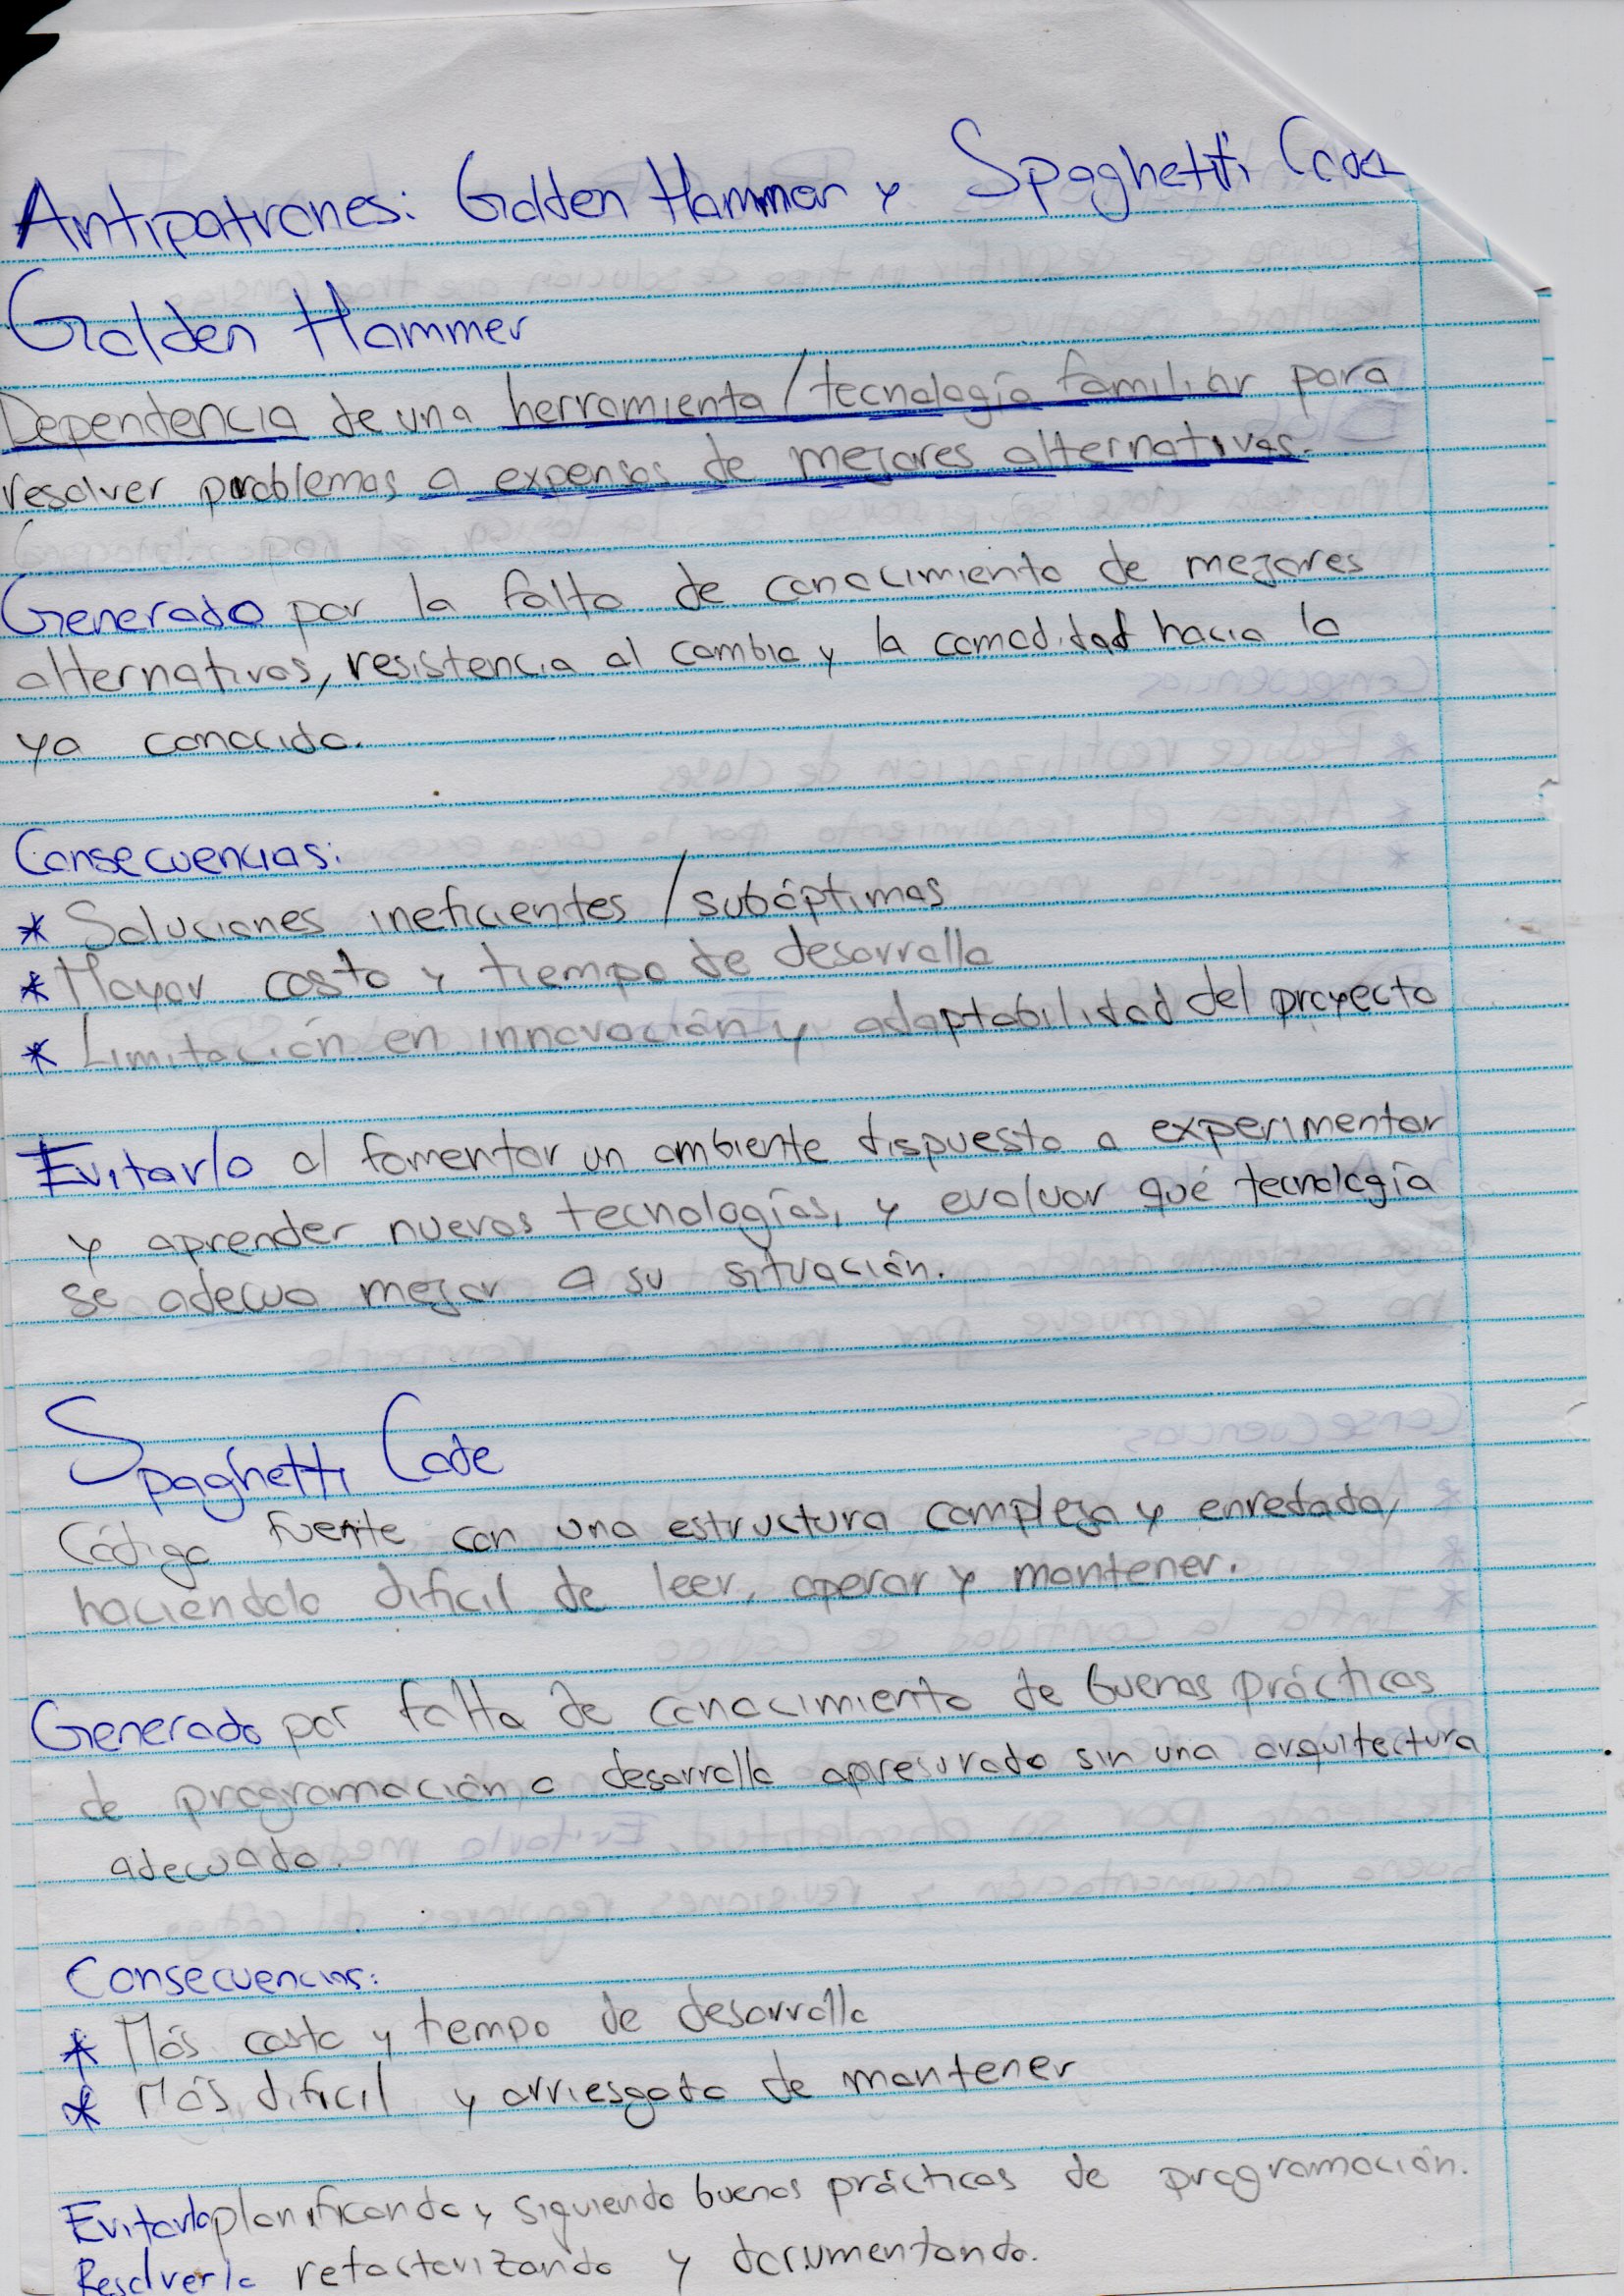 Antipatrones: Golden Hammer y Spaghetti Code
Golden Hammer
Dependencia de una herramienta/tecnología familiar para
resolver problemas a expensas de mejores alternativas.
Generado por la falta de conocimiento de mejores
alternativas, resistencia al cambio y la comodidad hacia lo
ya conocido.
Consecuencias:
* Soluciones ineficientes/subóptimas
* Mayor costo y tiempo de desarrollo
* Limitación en innovación y adaptabilidad del proyecto
Evitarlo al fomentar un ambiente dispuesto a experimentar
y aprender nuevas tecnologías, y evaluar qué tecnología
se adecua mejor a su situación.
Spaghetti Code
Código fuente con una estructura compleja y enredada,
haciéndolo dificil de leer, operar y mantener.
Generado por falta de conocimiento de buenas prácticas
de programación o desarrollo apresurado sin una arquitectura
adecuada.
Consecuencias:
* Más costo y tempo de desarrollo
* Más dificil y arriesgado de mantener
Evitarlo planificando y siguiendo buenas prácticas de programación.
Resolverlo refactorizando y documentando.